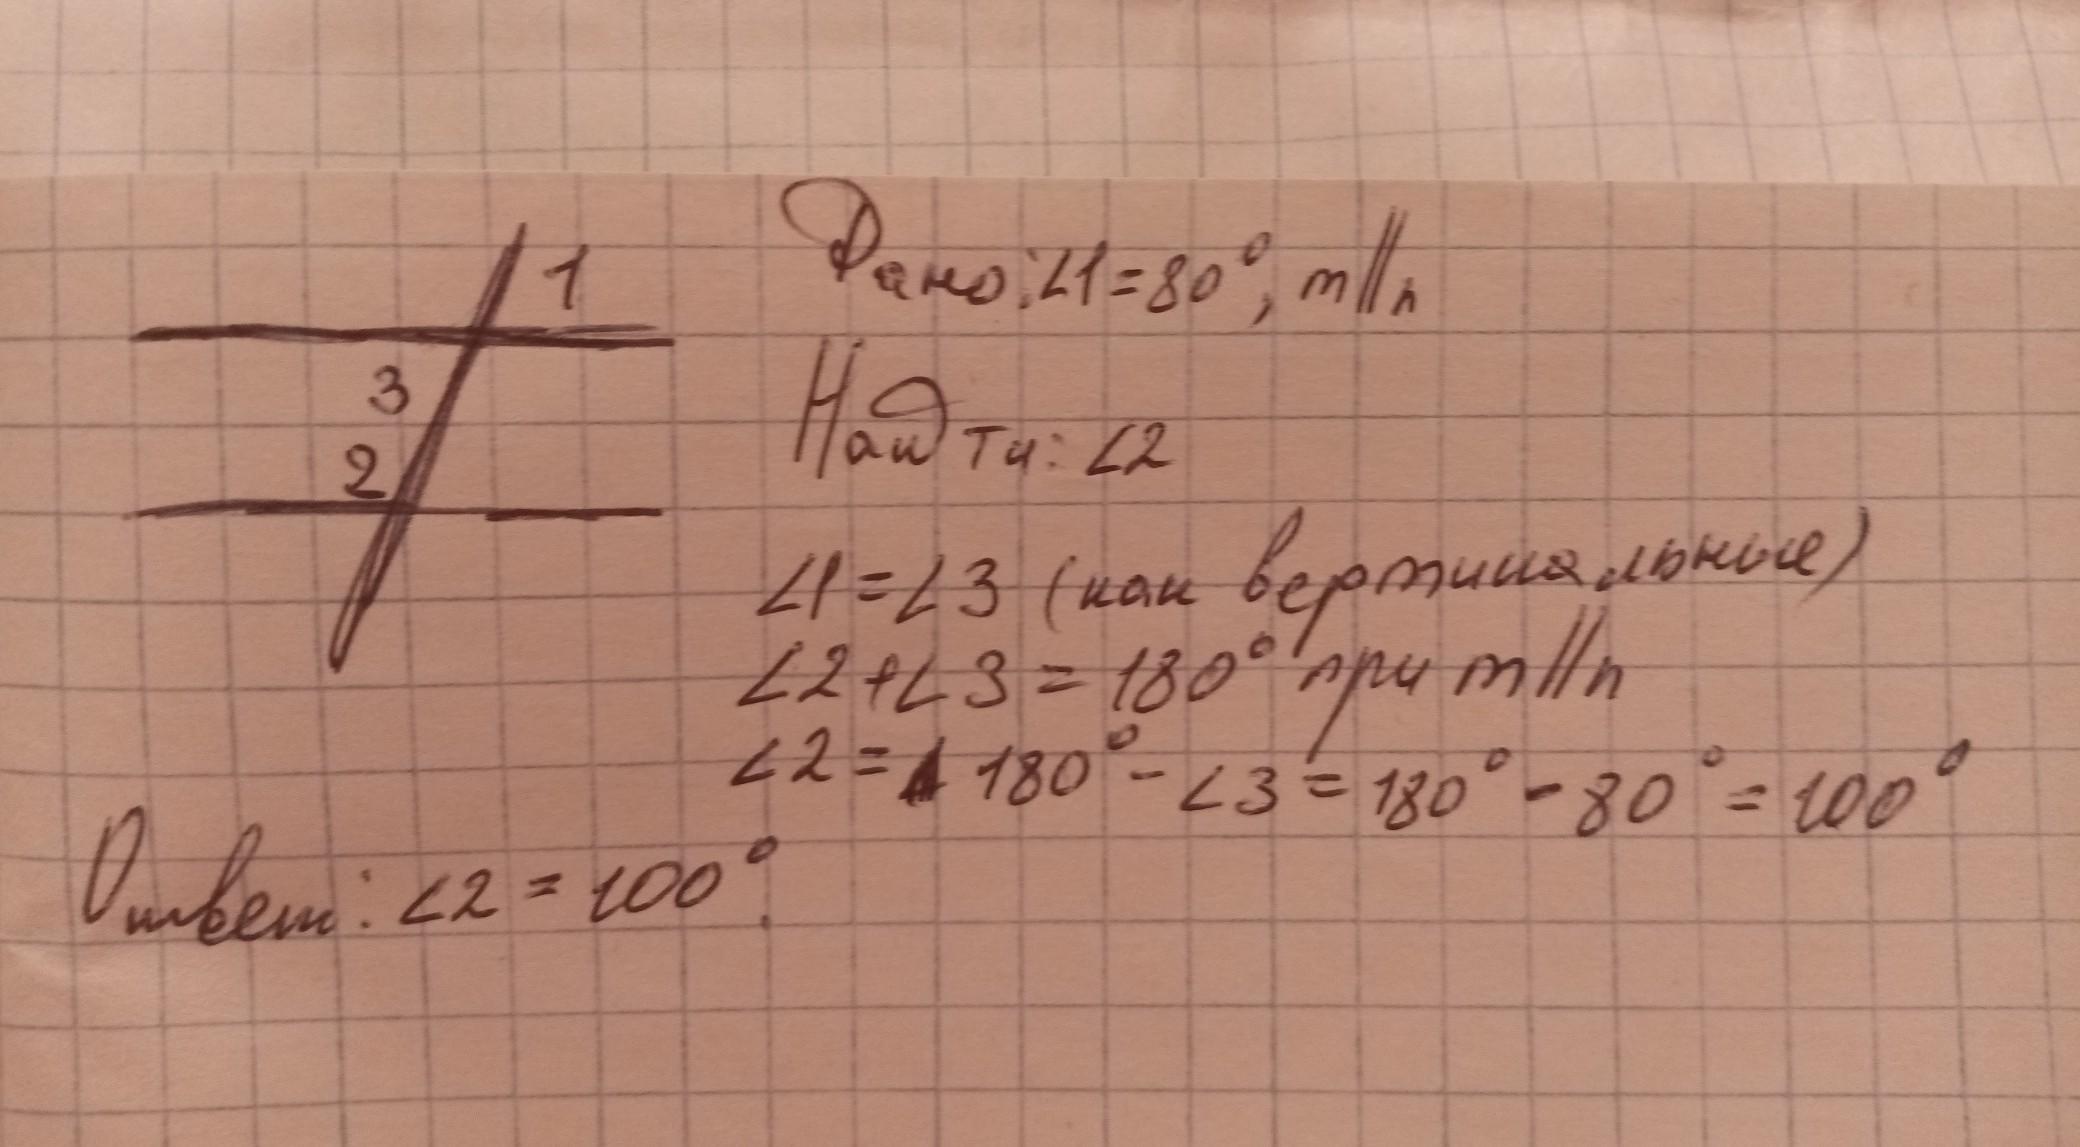 1
3
2
Дано: ∠1=80°, m||n
Найти: ∠2
∠1=∠3 (как вертикальные)
∠2+∠3=180° при m||n
∠2= 180°-∠3=180°-80°=100°
Ответ: ∠2=100°.